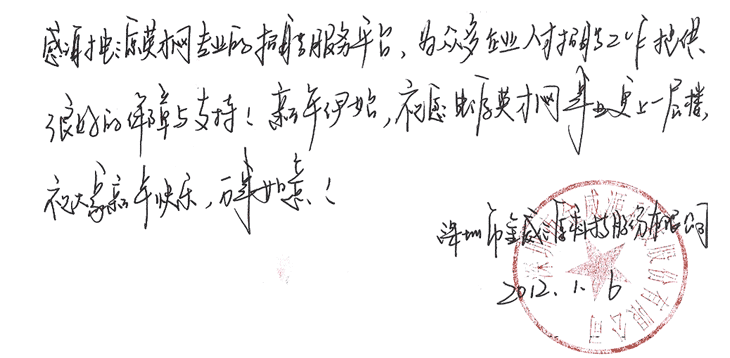 感谢电源英才网专业的招聘服务平台，为众多企业人才招聘工作提供
很好的保障与支持！新年伊始，祝愿电源英才网事业更上一层楼，
祝大家新年快乐，万事如意！
深圳市金威源科技股份有限公司
2012.1.6